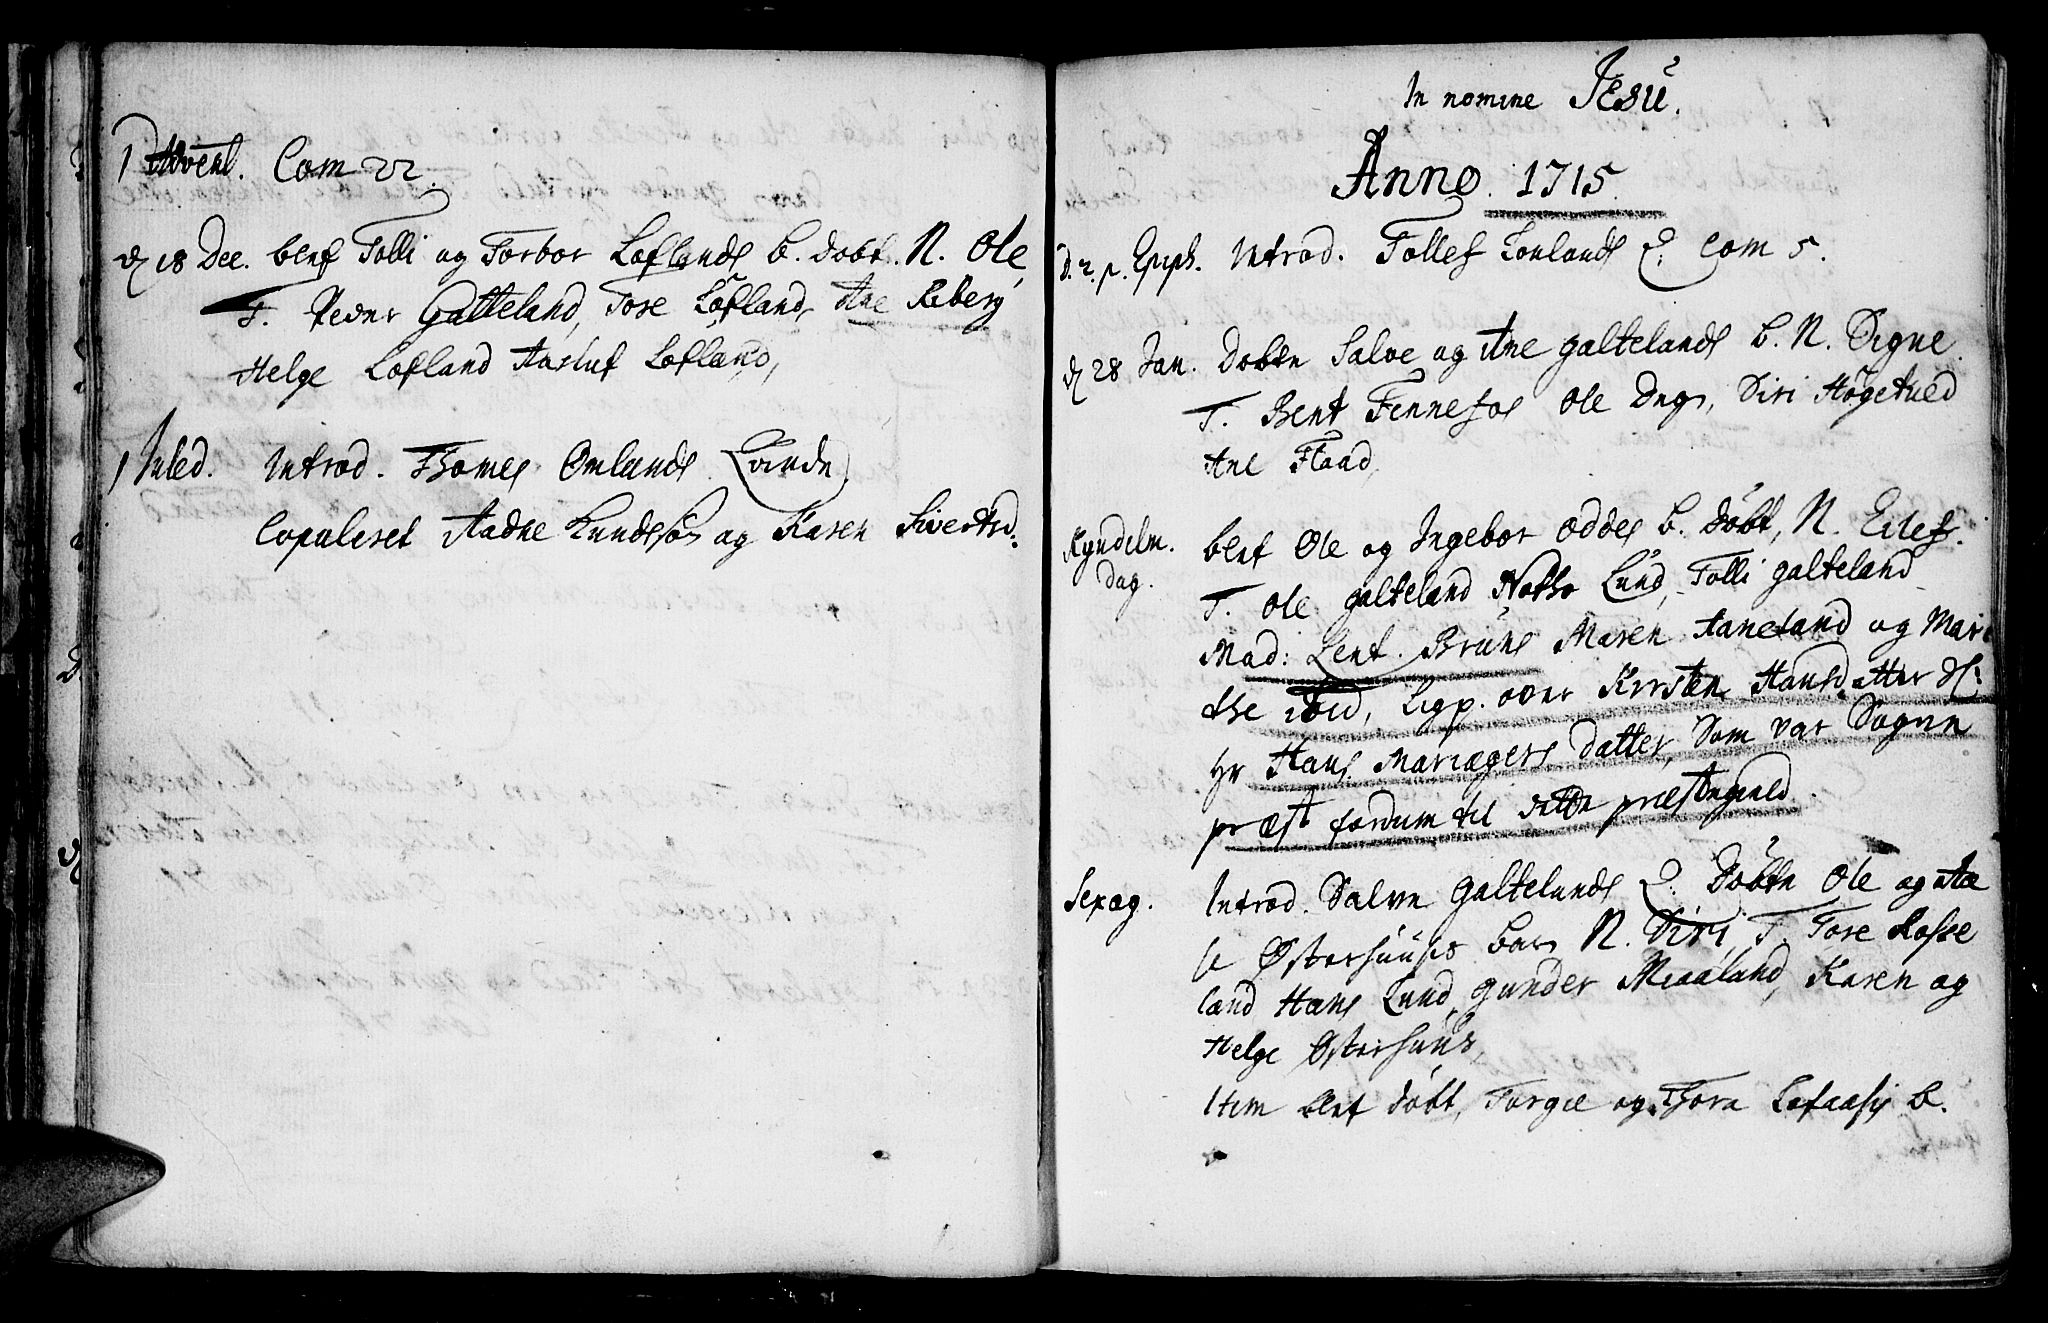 1 Advent. Com 22.
d 18 Dec. blef Tolli og Torbor Loflands b. døbt. N. Ole,
T. Peder Galteland, Tore Løfland, Ane Riberg
Helge Lofland Aasluf Løfland,
1 Juled. Introd. Thomes Omlands
Copuleret Aadne Knudssøn og Karen Sivertsd.
In nomine Jesu.
Anno. 1715.
D. 2. p. Epiph. Introd. Tollef Lonlands Q. Com 5.
d 28 Jan. Døbtn Salve og Ane galtelands b. N. Signe.
T. Bent Fennefos Ole Drgs, Siri Høgetued
Ane Flaad,
Kyndelm. blef Ole og Ingebor Oddes b. Døbt, N. Ellef.
dag. T. Ole galteland Lund, Tolli galteland
Mad: Lent. Bruns Maren Aaneland og Mari
the ibid, Ligp. over Kirsten Hansdatter
Hr Hans Mariagers Datter, Som var Sogne
præst fordum til dette præstegield.
Sexag. Introd. Salve galtelands Q. Døbtn Ole og Aa
se Østerhuuses barn N. Siri, T. Tore Rosse
land Hans Lund, gunder Miaaland, Karen og
Helge Østerhuus,
Item blef døbt, Torgie og Thora Lofaasis b.